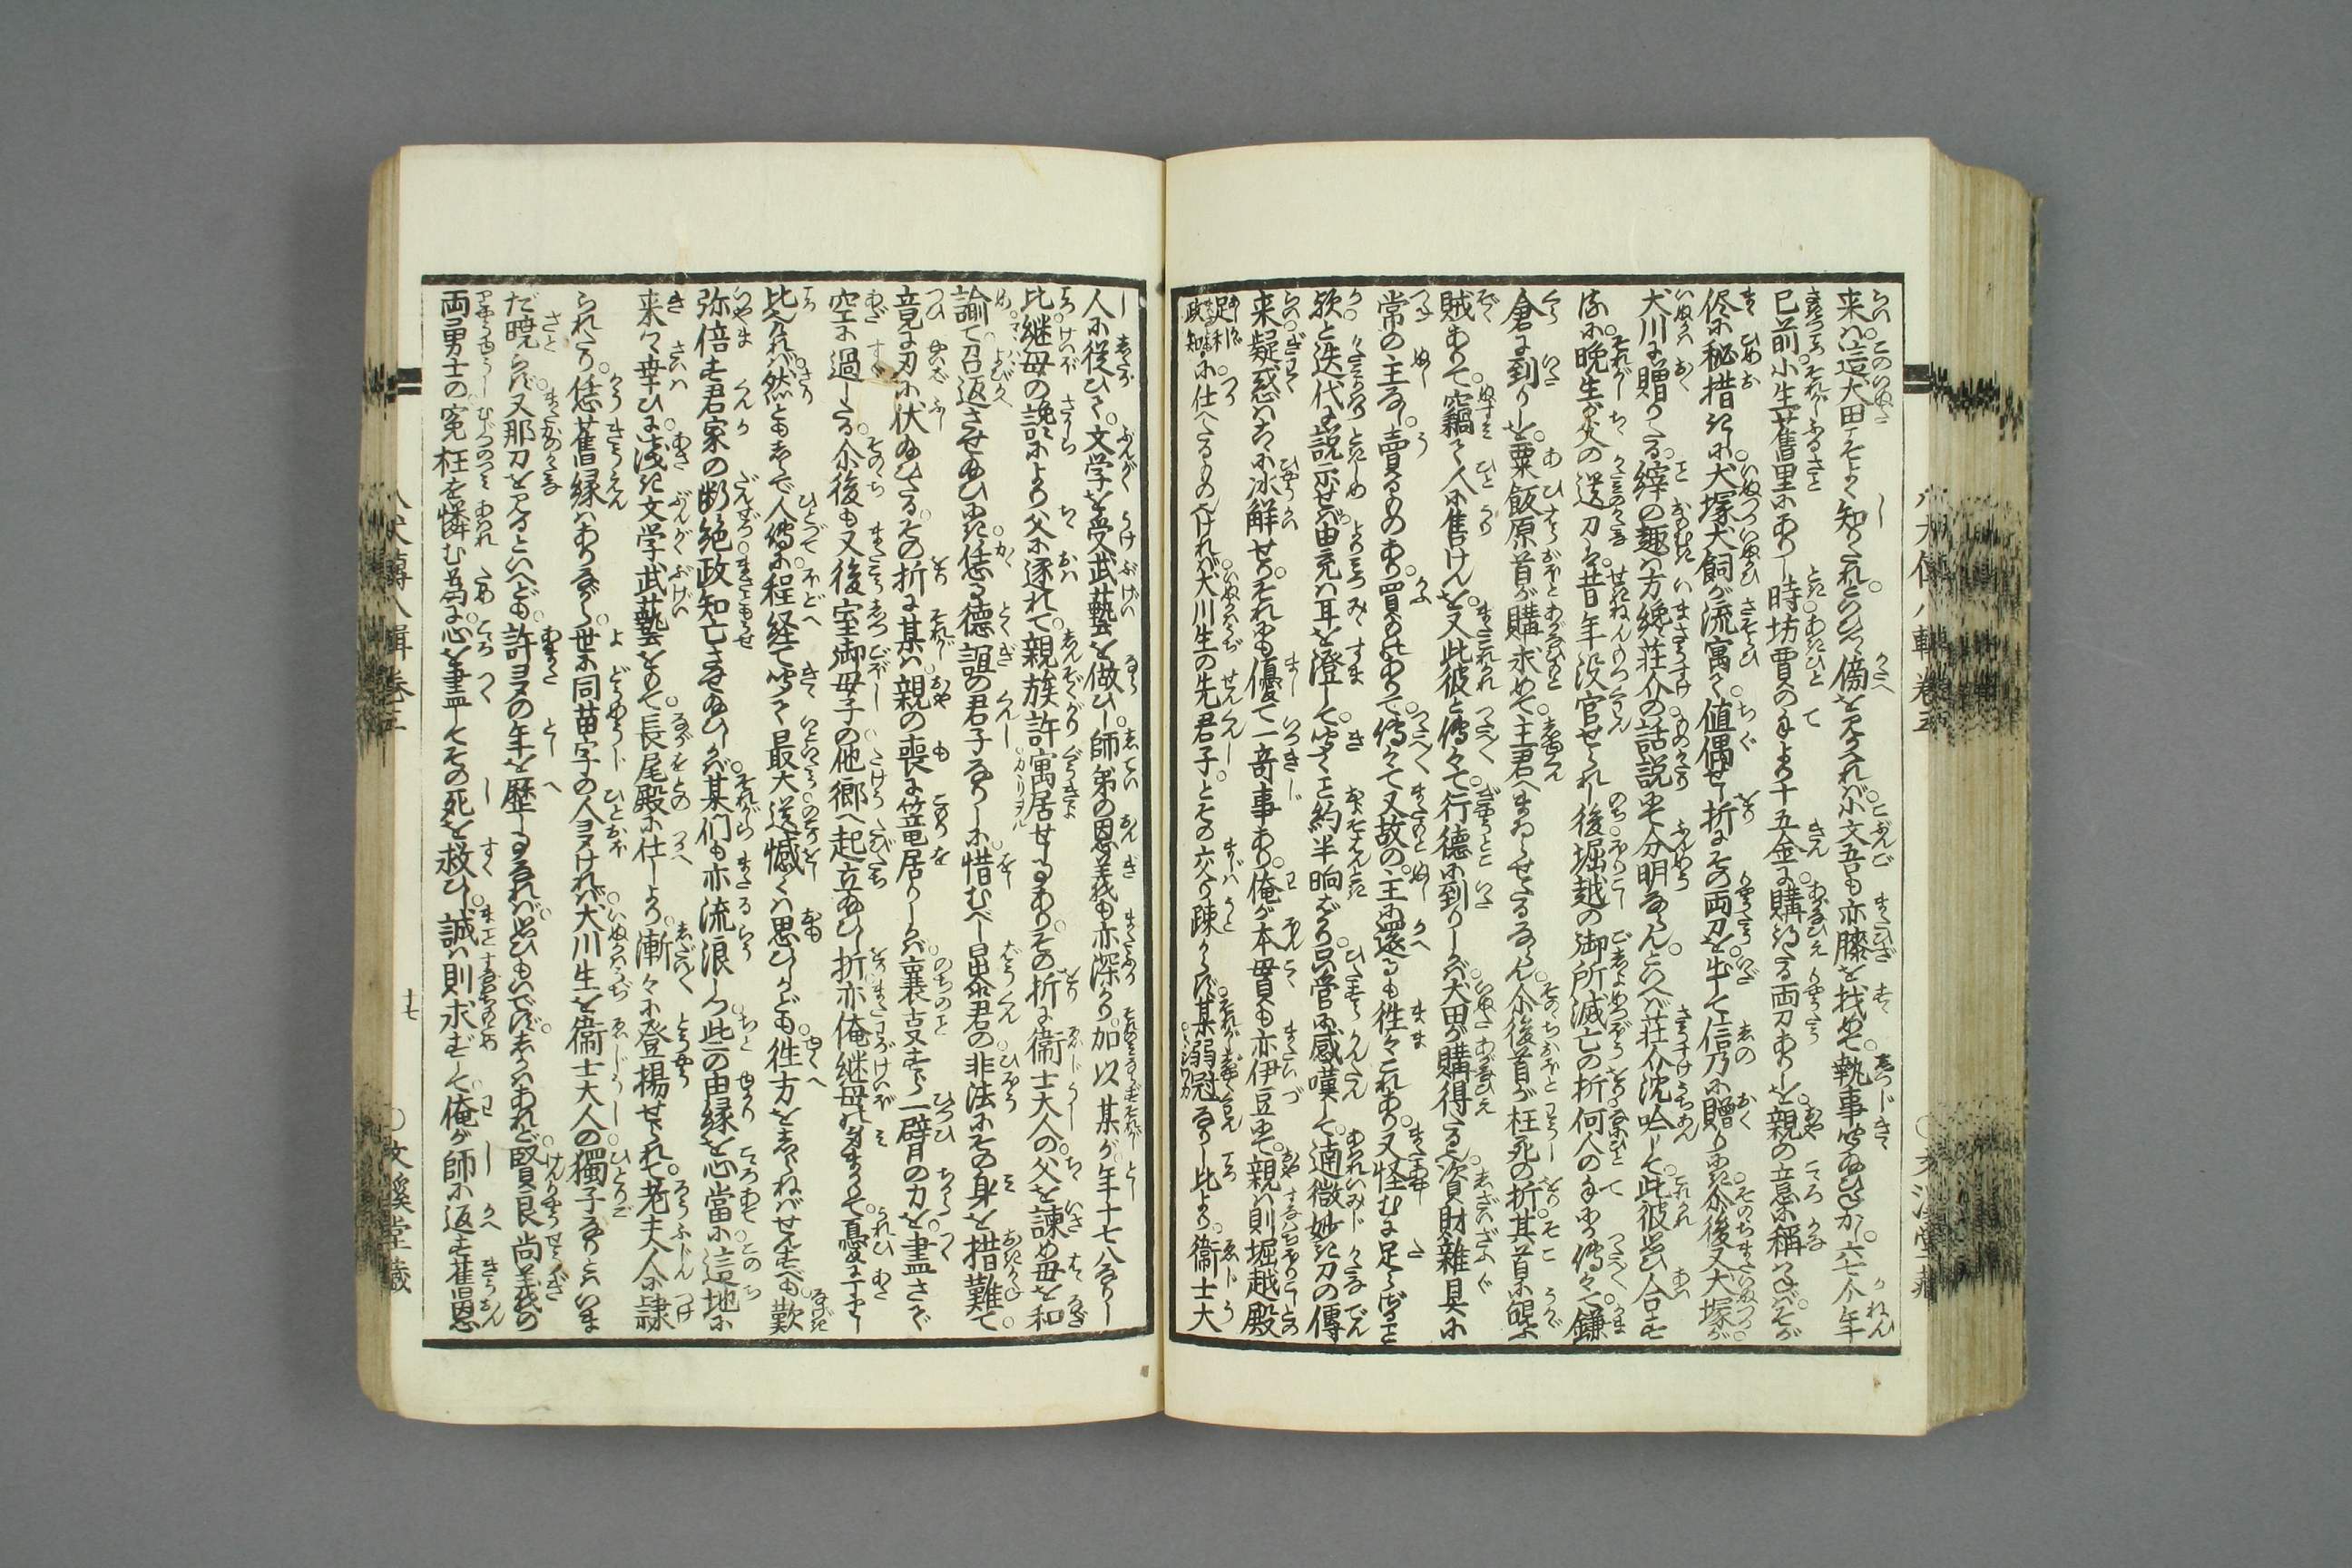 来は。這犬田こそよく知りたれといひつゝ傍を見かへれば。小文吾も亦膝を找めて。執事聞給ひしか。六七个年
已前小生舊里にありし時。坊賈の手より十五金に購得たる両刀ありしを。親の意に稱はざれば。そが
侭に秘措きしに。犬塚犬飼が流寓て。値偶せし折にその両刀を。出して信乃に贈りにき。尓後又犬塚が
犬川に贈りたる。縡の趣は方纔荘介の話説にて分明ならん。といへば荘介沈吟じて。此彼思ひ合する
に。晩生が父の送刀は。昔年没官せられし後。堀越の御所滅亡の折。何人の手にか傳々て。鎌
倉に到りしを。粟飯原首が購求めて。主君へまゐらせたるならん。尓後首が枉死の折。其首に俔ふ
賊ありて。竊て人に售けんを。又此彼と傳々て。行徳に到りしかば。犬田が購得たる也。資財雜具に
常の主なし。賣るものあり。買ものありて。傳々て又故の。主に還るも徃々これあり。又怪むに足らざること
歟。と迭代に説示せば。由充は耳を澄して。聞くこと約半晌ばかり。只管に感嘆して。適微妙き刀の傳
来。疑惑はこゝに冰解せり。それにも優て一竒事あり。俺が本貫も亦伊豆にて。親は則堀越殿
足利政知に仕へたるものなれば。犬川生の先君子と。その交り疎からず。某弱冠なりし比より。衞士大
人に從ひて。文学を受武藝を做ひし。師弟の恩義も亦深かり。加以某が。年十七八なりし
比。継母の讒によりて父に逐れて。親族許寓居せしことあり。その折に衞士大人の。父を諫め母を和
諭て。召返させ給ひにき。恁る徳誼の君子なりしに。惜むべし暴君の。非法にその身を措難て。
竟に刃に伏給ひたる。その折に某は。親の喪に篭居りしかば。襄㕝すら一臂の力を。盡さで
空に過したる。尓後も又後室御母子の。他郷へ起立給ひし折。亦俺継母の身まかりて。憂に丁する
比なれば。然ともしらで人傳に。程経て聞て最大う。送憾くは思ひしかども。徃方をしらねばせんすべも。歎き
弥倍す君家の断絶。政知亡させ給ひしかば。某們も亦流浪しつ。些の由縁を心當に。這地に
来て幸ひに。浅き文学武藝をもて。長尾殿に仕しより。漸々に登揚せられて。老夫人に隷
られたり。恁舊縁はありながら。世に同苗字の人多ければ。犬川生を衞士大人の。獨子なりとはいま
だ暁らず。又那刀を見るといへども。許多の年を歴しことなれば。思ひもいでず。しかはあれど。賢良尚義の
両勇士の。寃枉を憐む為に。心を盡してその死を救ひし。誠は則求ずして。俺が師に返す舊恩
八犬傳八輯巻五
十七
文溪堂藏